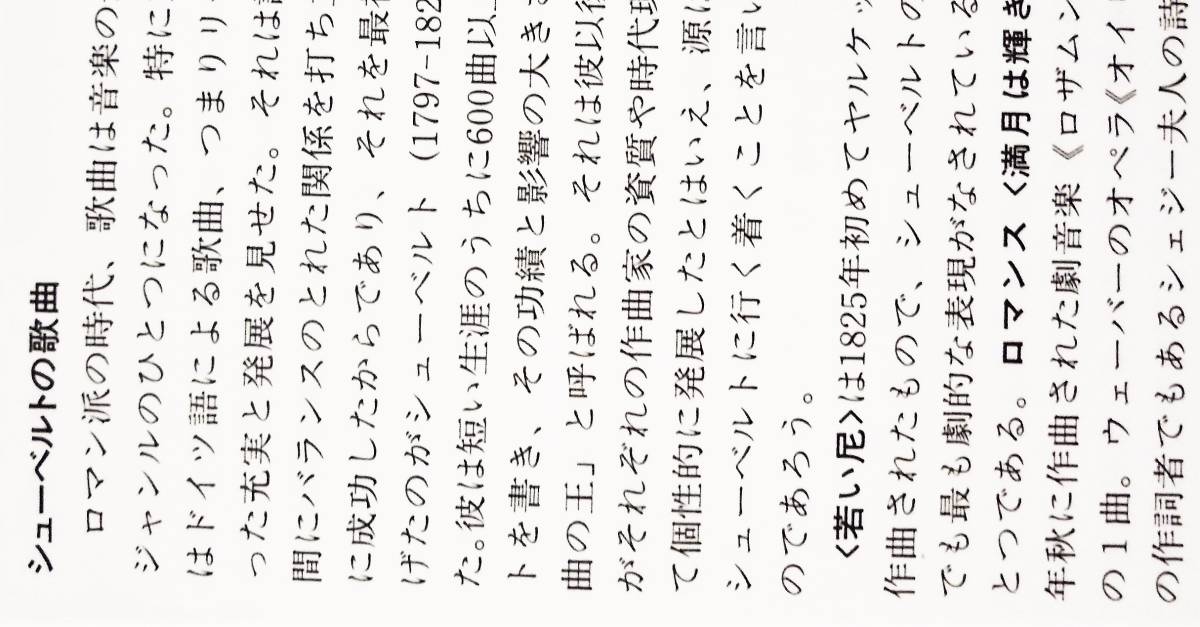 シューベルトの歌曲
ロマン派の時代、歌曲は音楽の
ジャンルのひとつになった。特に
はドイツ語による歌曲、つまりリ
った充実と発展を見せた。それは
間にバランスのとれた関係を打ち
に成功したからであり、それを最
げたのがシューベルト (1797-182
た。彼は短い生涯のうちに600曲以
トを書き、その功績と影響の大き
曲の王」と呼ばれる。それは彼以
がそれぞれの作曲家の資質や時代
て個性的に発展したとはいえ、源
シューベルトに行く着くことを言
のであろう。
〈若い尼〉は1825年初めてヤルケッ
作曲されたもので、シューベルトの
でも最も劇的な表現がなされている
とつである。ロマンス〈満月は輝き
年秋に作曲された劇音楽《ロザムン
の1曲。ウェーバーのオペラ《オイ
の作詞者でもあるシェジー夫人の詩